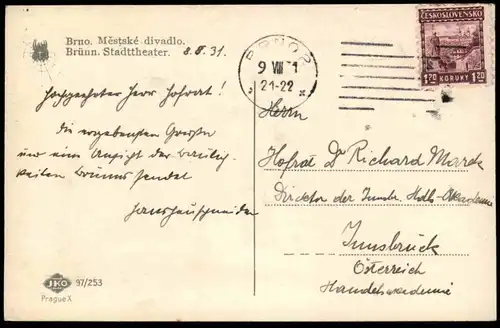 Brno. Městské divadlo.
Brünn. Stadttheater. 8.8.31.
Hochgeehrter Herr Hofrat!
Die ergebensten Grüße
und eine Ansicht der Baulich-
keiten Brünns sendet
97/253
Prague X
BRNO 2
9 VIII 31
21-22
ČESKOSLOVENSKO
1.20 KORUNY 1.20
Herrn
Hofrat Dr Richard Marek
Direktor der Innsbr. Hdls-Akademie
Innsbruck
Österreich
Handelsakademie